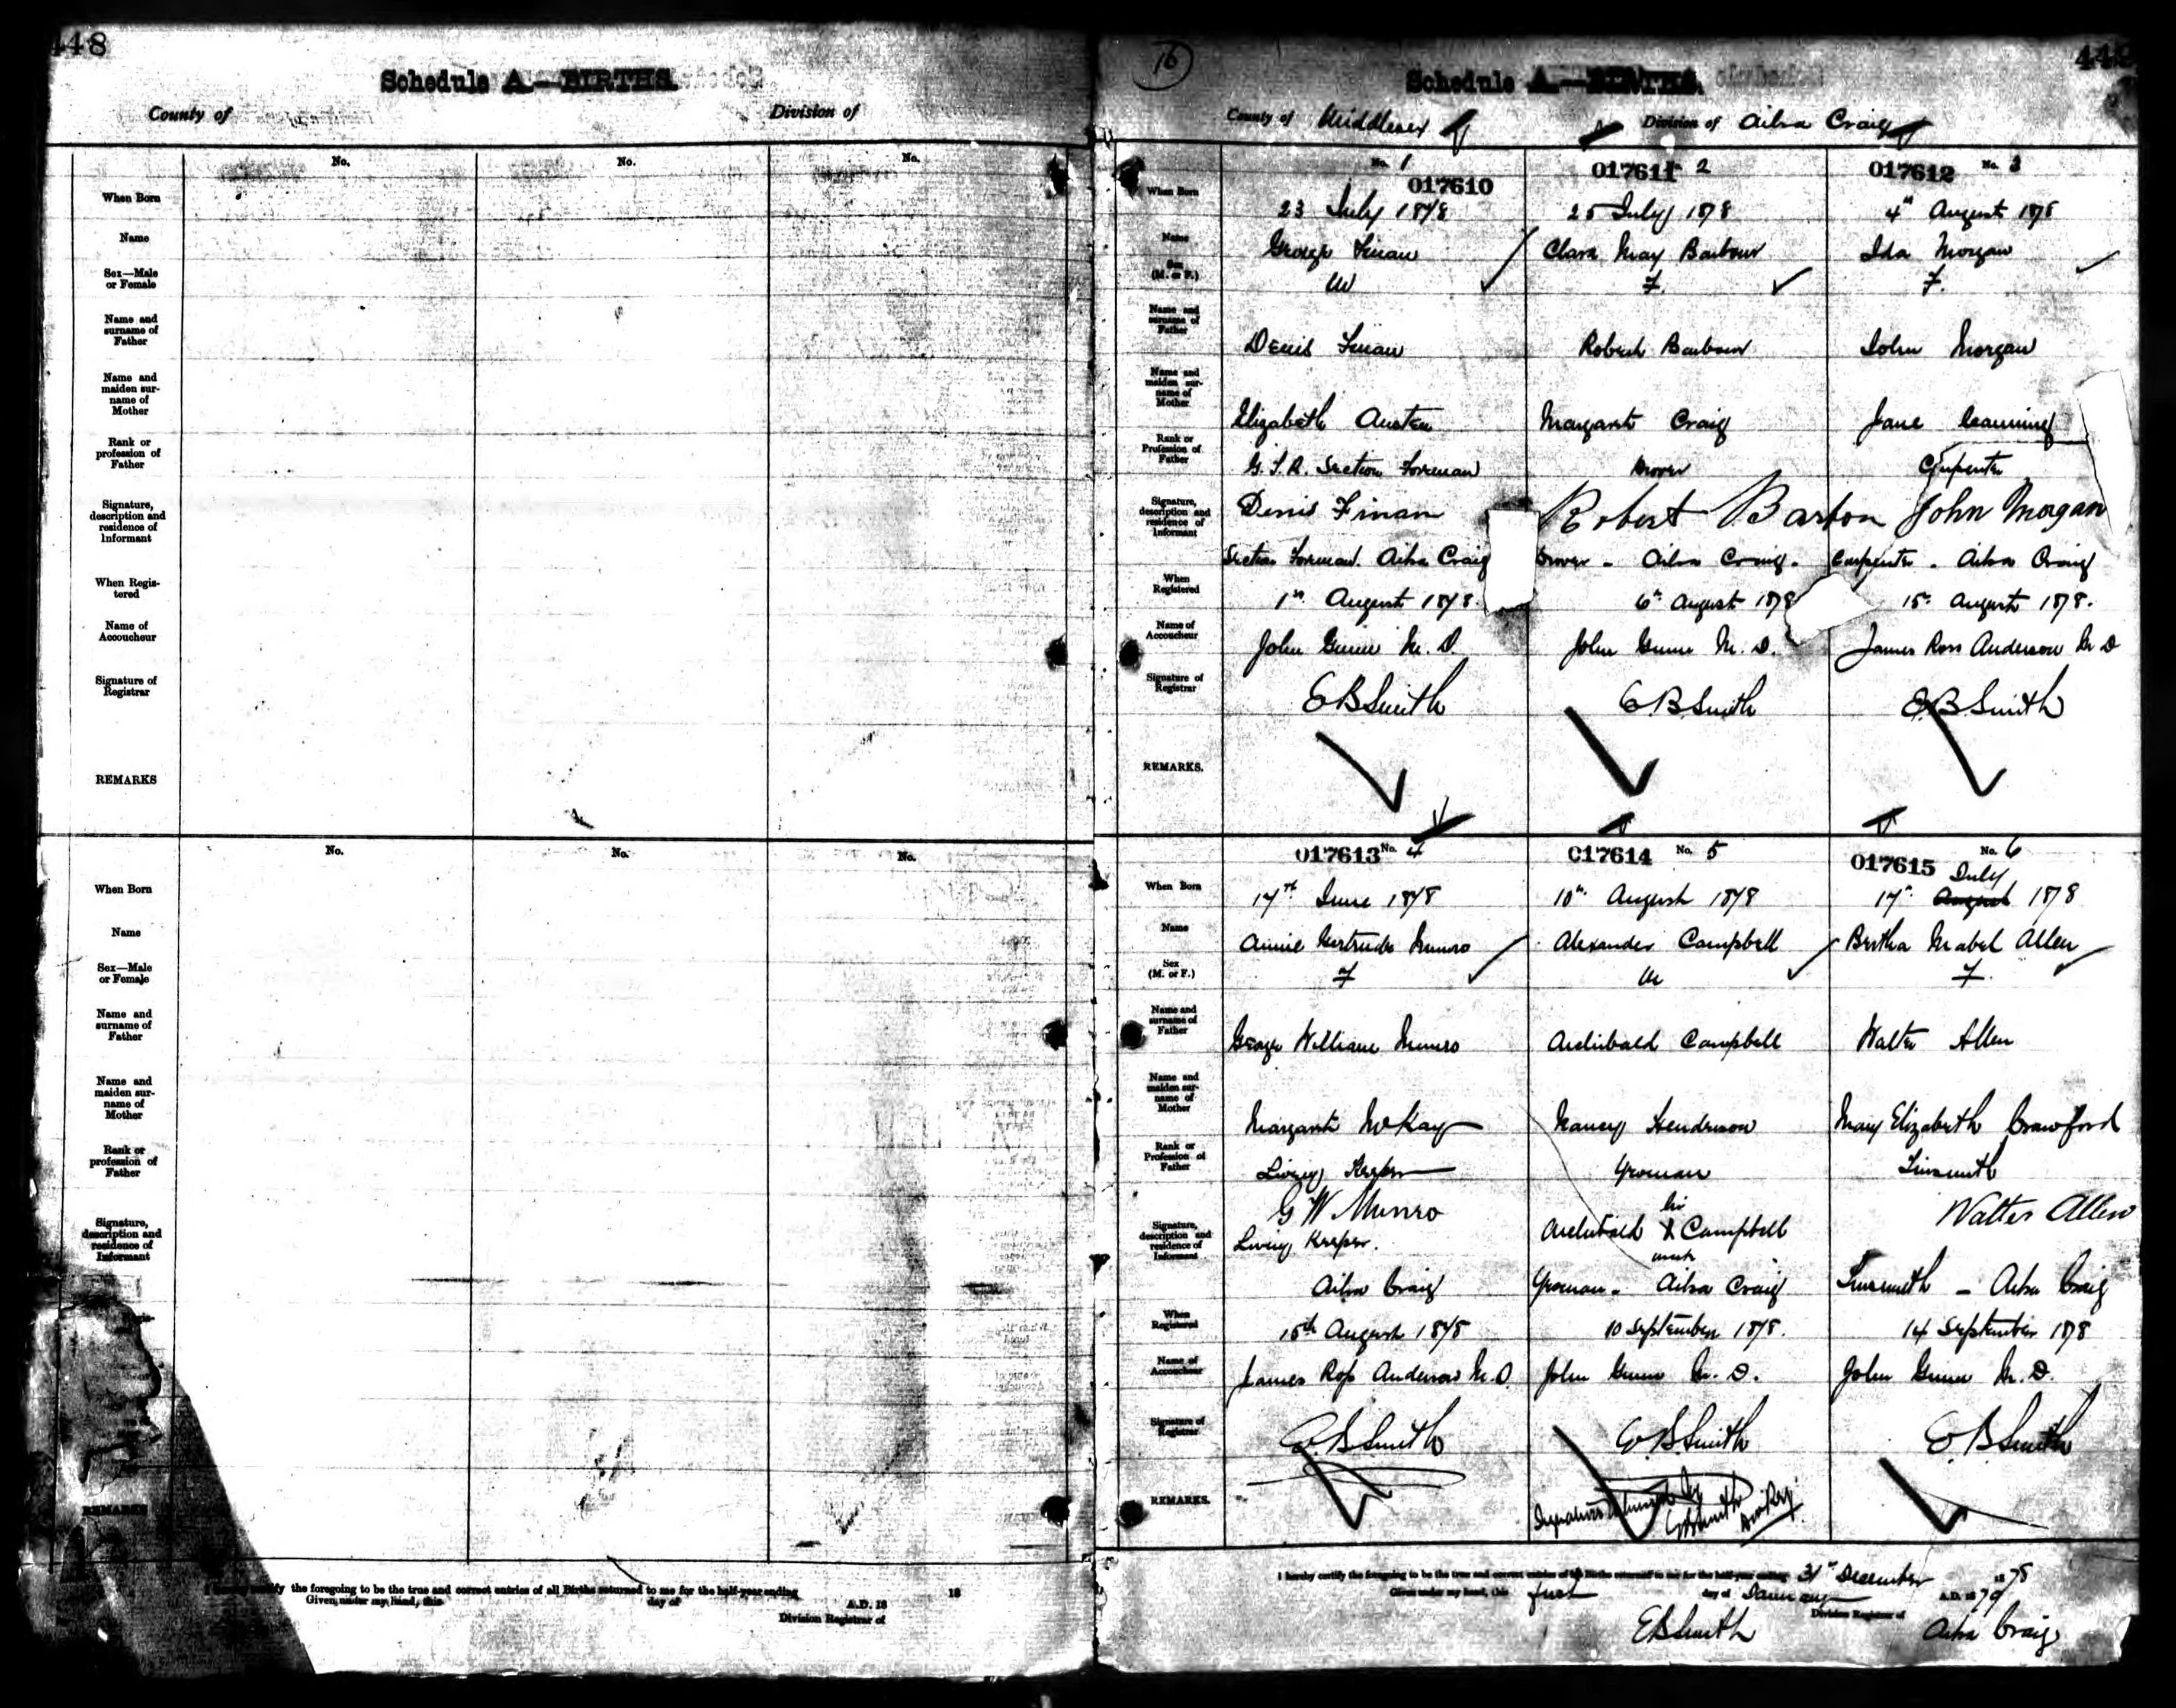 448
Schedule A.—BIRTHS.
County of
Division of
No.
No.
No.
When Born
Name
Sex—Male
or Female
Name and
surname of
Father
Name and
maiden sur-
name of
Mother
Rank or
profession of
Father
Signature,
description and
residence of
Informant
When Regis-
tered
Name of
Accoucheur
Signature of
Registrar
REMARKS
No.
No.
No.
When Born
Name
Sex—Male
or Female
Name and
surname of
Father
Name and
maiden sur-
name of
Mother
Rank or
profession of
Father
Signature,
description and
residence of
Informant
REMARKS
the foregoing to be the true and correct entries of all Births returned to me for the half-year ending 18
Given under my hand, this day of A.D. 18
Division Registrar of
16
Schedule A.—BIRTHS.
County of Middlesex Division of Ailsa Craig
No. 1 017610 017611 2 017612 No. 3
When Born 23 July 1878 25 July 1878 4th August 1878
Name George Finan Clara May Barbour Ida Morgan
Sex
(M. or F.) M F. F.
Name and
surname of
Father Denis Finan Robert Barbour John Morgan
Name and
maiden sur-
name of
Mother Elizabeth Austen Margaret Craig Jane Canning
Rank or
Profession of
Father G.T.R. Section Foreman Drover Carpenter
Signature,
description and
residence of
Informant Denis Finan Robert Barbour John Morgan
Section Foreman. Ailsa Craig Drover - Ailsa Craig. Carpenter - Ailsa Craig
When
Registered 1st August 1878. 6th August 1878 15th August 1878.
Name of
Accoucheur John Gunn M.D. John Gunn M.D. James Ross Anderson M D
Signature of
Registrar E B Smith E. B. Smith E. B. Smith
REMARKS.
017613 No. 4 017614 No. 5 017615 No. 6
July
When Born 17th June 1878 10th August 1878 17th August 1878
Name Annie Gertrude Munro Alexander Campbell Bertha Mabel Allen
Sex
(M. or F.) F M F.
Name and
surname of
Father George William Munro Archibald Campbell Walter Allen
Name and
maiden sur-
name of
Mother Margaret McKay Nancy Henderson Mary Elizabeth Crawford
Rank or
Profession of
Father Livery Keeper Yeoman Tinsmith
Signature,
description and
residence of
Informant G W Munro his Walter Allen
Livery Keeper. Archibald X Campbell
mark
Ailsa Craig Yeoman - Ailsa Craig Tinsmith - Ailsa Craig
When
Registered 15th August 1878 10 September 1878. 14 September 1878
Name of
Accoucheur James Ross Anderson M.D. John Gunn M.D. John Gunn M.D.
Signature of
Registrar E B Smith E B Smith E B Smith
REMARKS.
I hereby certify the foregoing to be the true and correct entries of all Births returned to me for the half-year ending 31st December 1878
Given under my hand, this first day of January A.D. 1879
E B Smith Division Registrar of Ailsa Craig